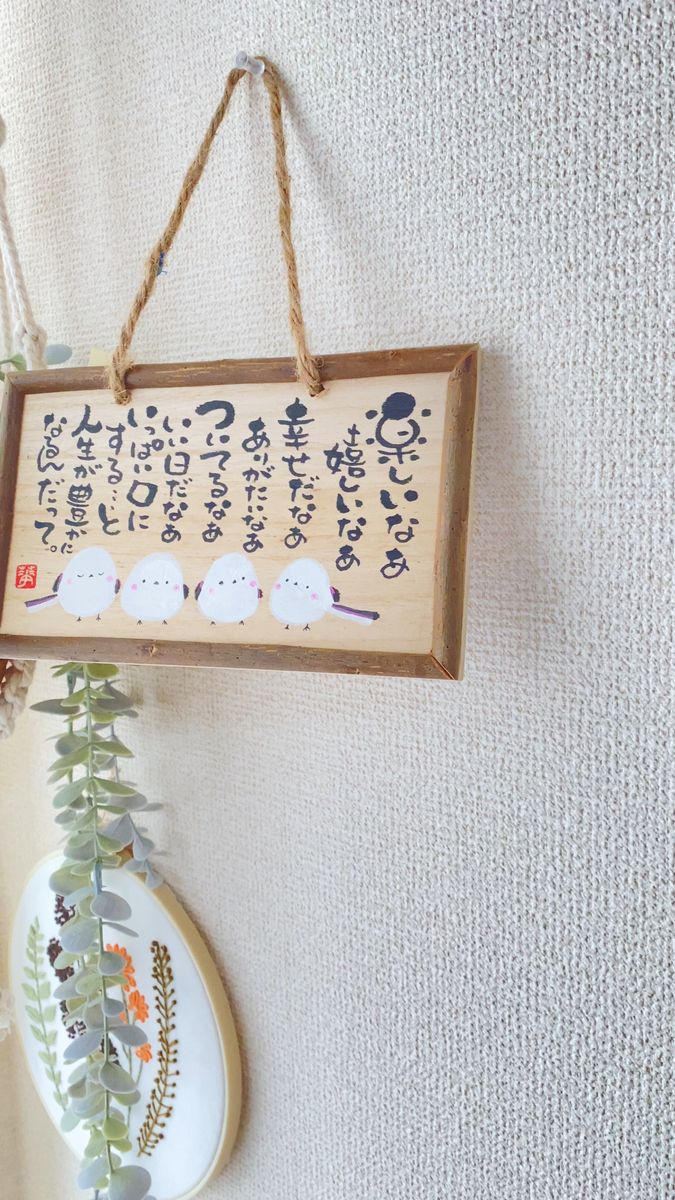 楽しいなぁ
嬉しいなぁ
幸せだなぁ
ありがたいなぁ
ついてるなぁ
いい日だなぁ
いっぱい口に
する…と
人生が豊かに
なるんだって。